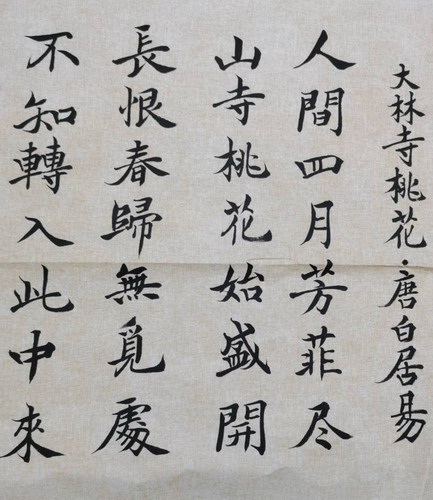 大林寺桃花·唐白居易
人間四月芳菲尽
山寺桃花始盛開
長恨春歸無覓處
不知轉入此中來